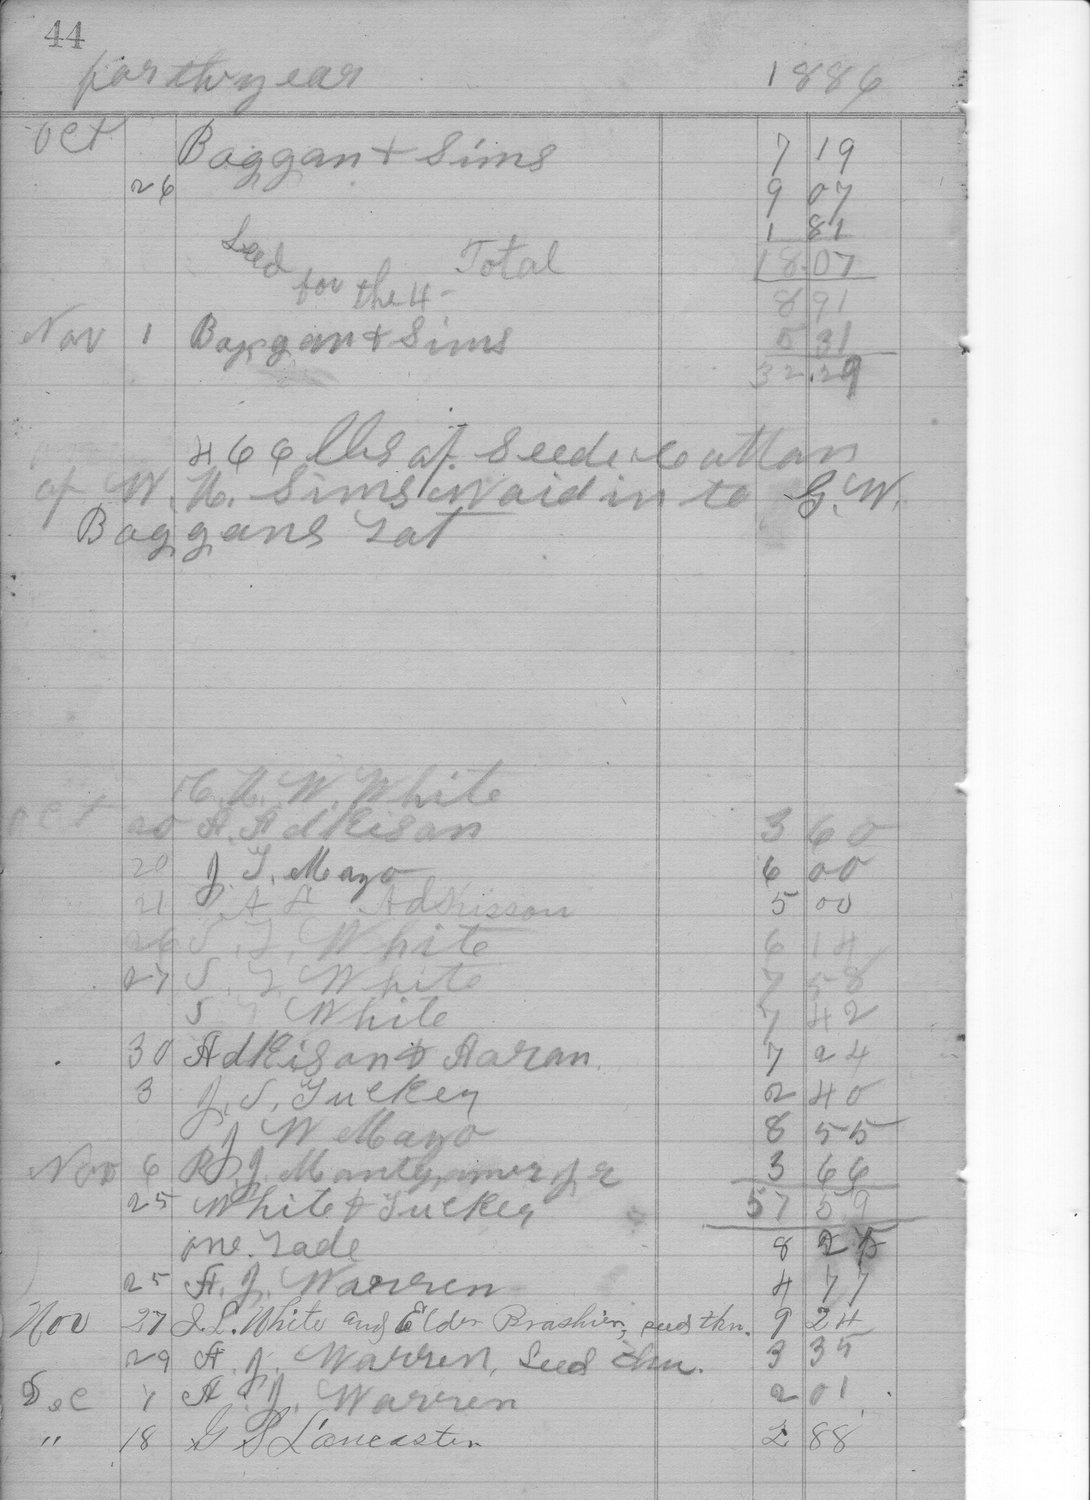 44
for the year 1886
Oct Baggan + Sims 7 19
26 9 07
1 81
Seed Total 18.07
for the 4 8 91
Nov 1 Baggan + Sims 5 31
32.29
466 lbs of Seed Cottan
of W. H. Sims Waid in to G. W.
Baggans Lat
H. W. White
Oct 20 A. Adkisan 3 60
20 J. T. Mayo 6 00
21 A Adkisson 5 00
26 S. T. White 6 14
27 S. T. White 7 58
S T White 7 42
30 Adkisan & Aaran 7 24
3 J. S. Tucker 2 40
J W Mayo 8 55
Nov 6 R. J. Mantgamer Jr 3 66
25 White & Tucker 57 59
one Lade 8 25
25 A. J. Warren 4 77
Nov 27 J. L. White and Elder Brashier, seed thn. 9 24
29 A. J. Warren, Seed thn. 3 35
Dec 1 A. J. Warren 2 01
" 18 G S Lancaster 2 88